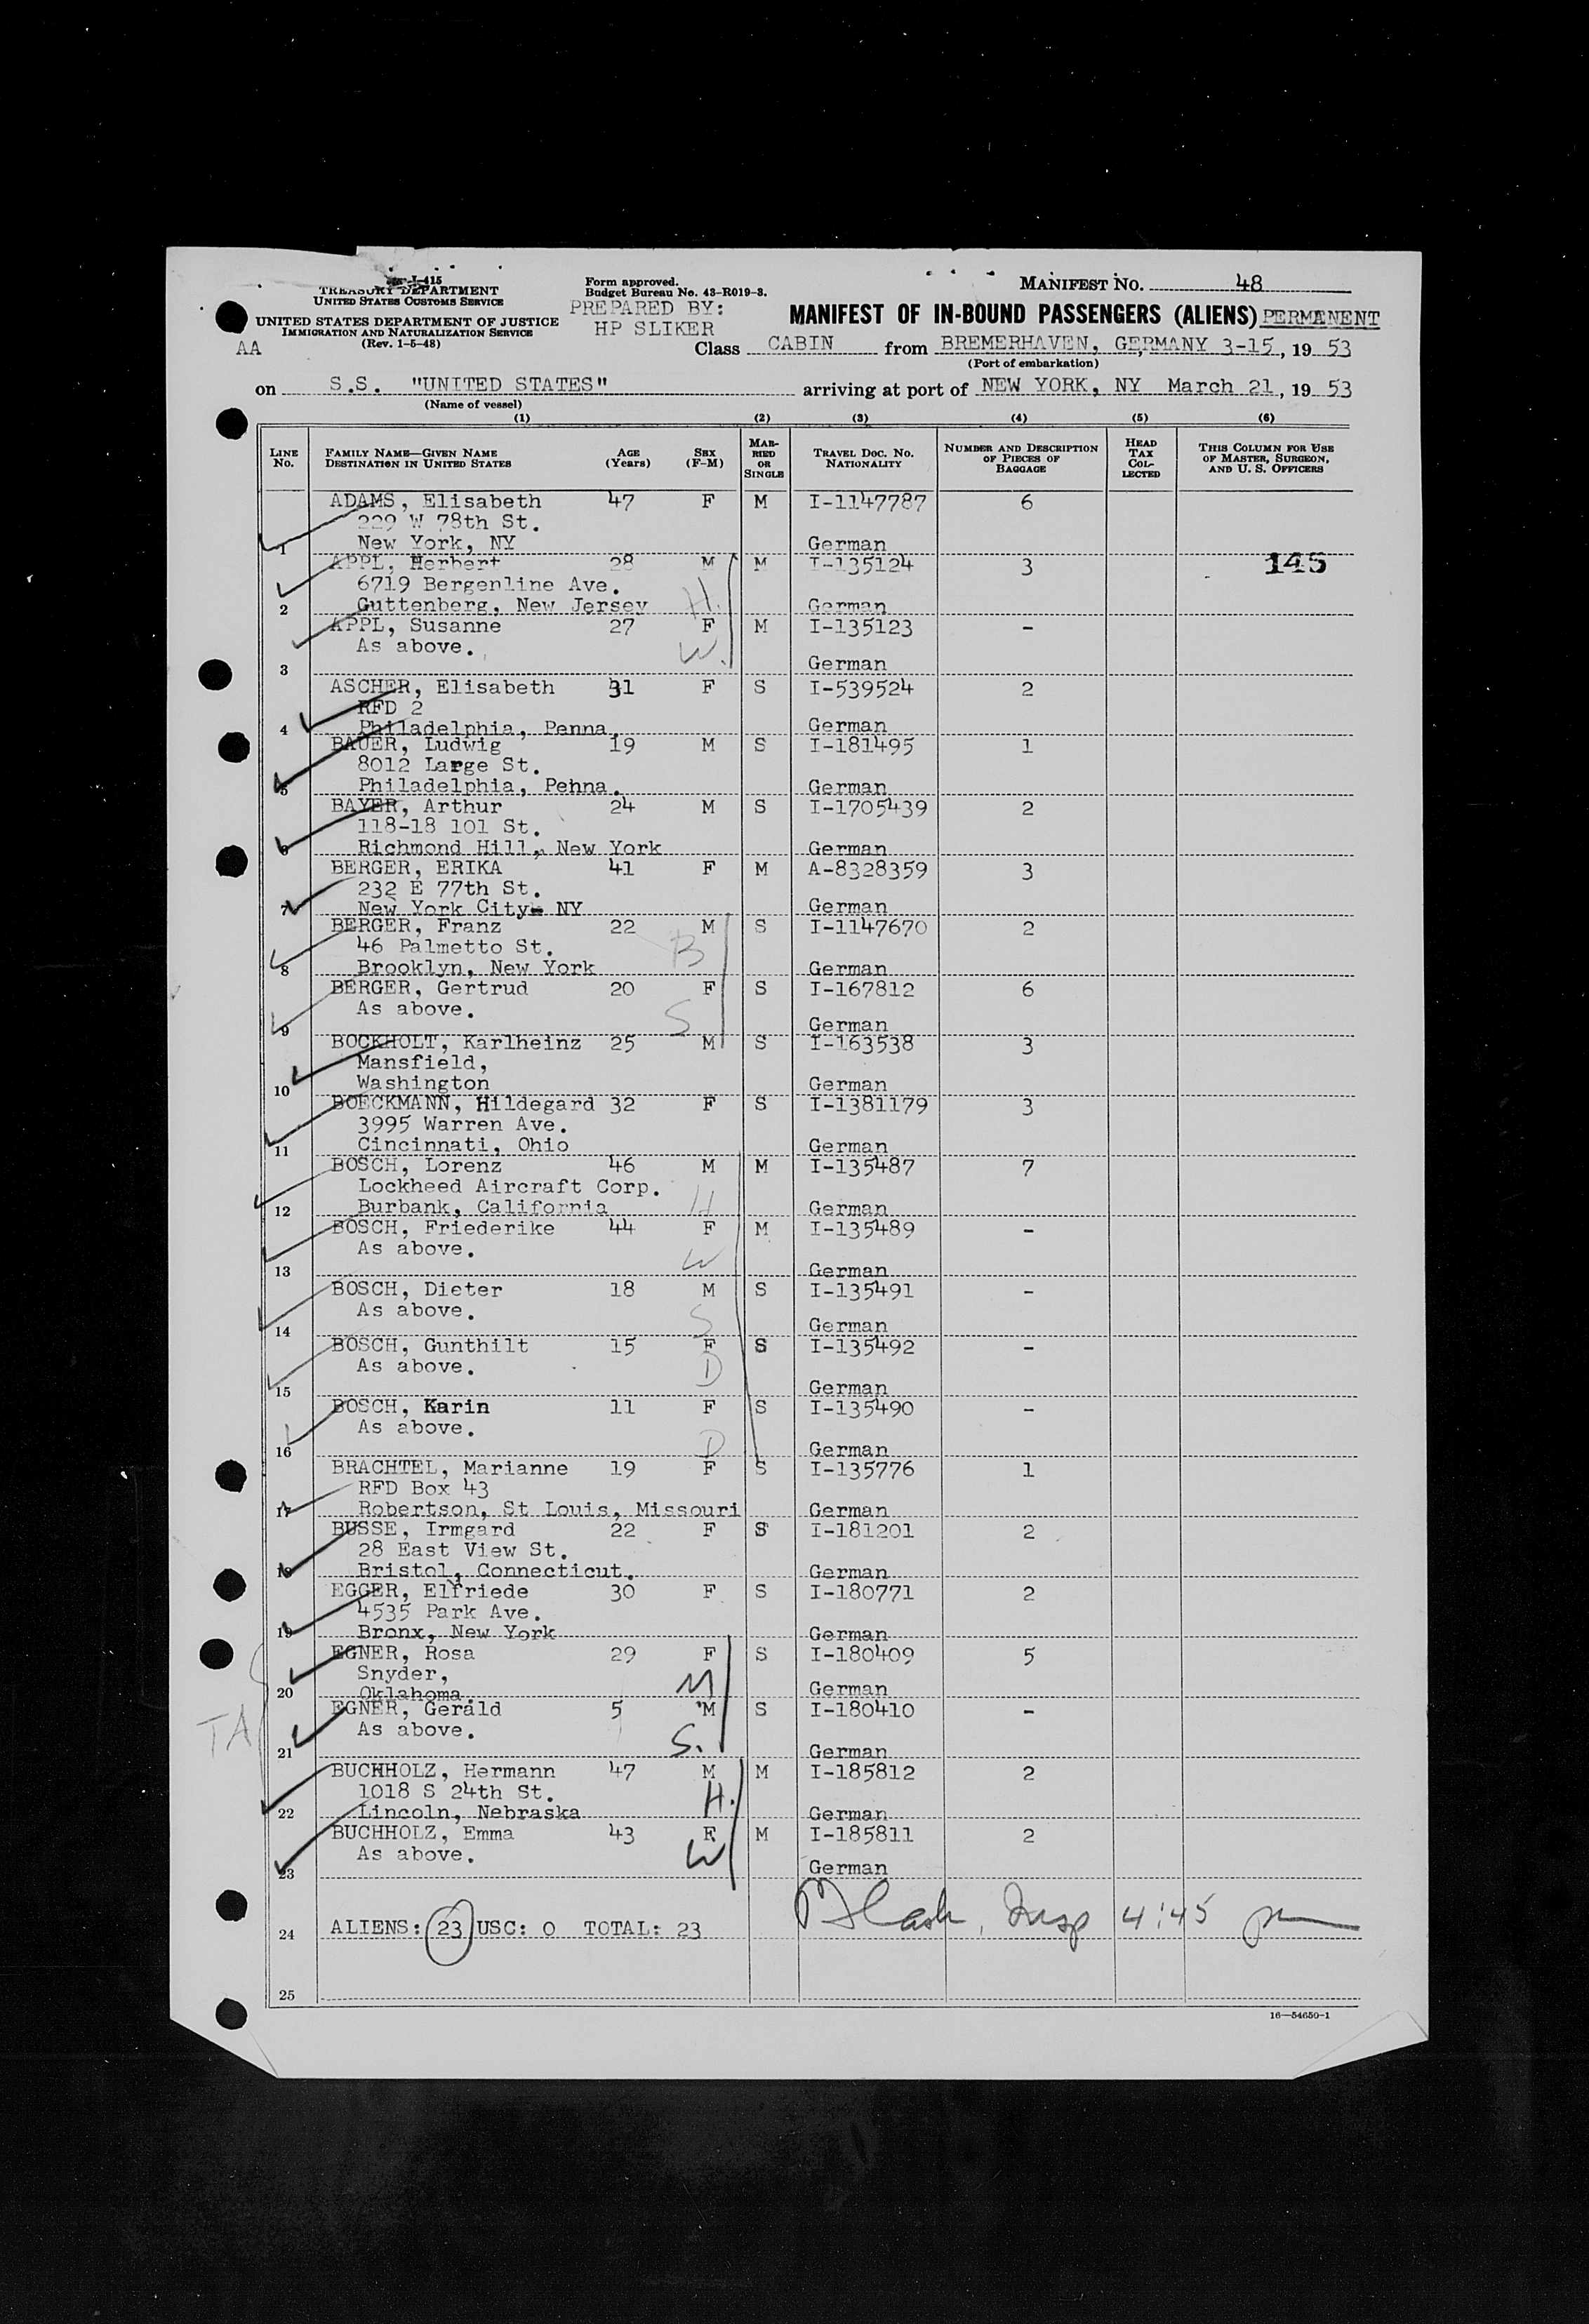 I-415
TREASURY DEPARTMENT
UNITED STATES CUSTOMS SERVICE
UNITED STATES DEPARTMENT OF JUSTICE
IMMIGRATION AND NATURALIZATION SERVICE
(Rev. 1-5-48)
AA
Form approved.
Budget Bureau No. 43-R019-3.
PREPARED BY:
HP SLIKER
MANIFEST NO. 48
MANIFEST OF IN-BOUND PASSENGERS (ALIENS) PERMANENT
Class CABIN from BREMERHAVEN, GERMANY 3-15, 19 53
(Port of embarkation)
on S.S. "UNITED STATES" arriving at port of NEW YORK, NY March 21, 19 53
(Name of vessel)
(1) (2) (3) (4) (5) (6)
LINE NO. FAMILY NAME—GIVEN NAME DESTINATION IN UNITED STATES AGE (YEARS) SEX (F-M) MARRIED OR SINGLE TRAVEL DOC. NO. NATIONALITY NUMBER AND DESCRIPTION OF PIECES OF BAGGAGE HEAD TAX COLLECTED THIS COLUMN FOR USE OF MASTER, SURGEON, AND U. S. OFFICERS
ADAMS, Elisabeth 47 F M I-1147787 6
229 W 78th St.
1 New York, NY German
APPL, Herbert 28 M M I-135124 3 145
6719 Bergenline Ave.
2 Guttenberg, New Jersey H. German
APPL, Susanne 27 F M I-135123 -
As above. W.
3 German
ASCHER, Elisabeth 31 F S I-539524 2
RFD 2
4 Philadelphia, Penna. German
BAUER, Ludwig 19 M S I-181495 1
8012 Large St.
5 Philadelphia, Pehna. German
BAYER, Arthur 24 M S I-1705439 2
118-18 101 St.
6 Richmond Hill, New York German
BERGER, ERIKA 41 F M A-8328359 3
232 E 77th St.
7 New York City- NY German
BERGER, Franz 22 M S I-1147670 2
46 Palmetto St. B
8 Brooklyn, New York German
BERGER, Gertrud 20 F S I-167812 6
As above. S
9 German
BOCKHOLT, Karlheinz 25 M S I-163538 3
Mansfield,
10 Washington German
BOECKMANN, Hildegard 32 F S I-1381179 3
3995 Warren Ave.
11 Cincinnati, Ohio German
BOSCH, Lorenz 46 M M I-135487 7
Lockheed Aircraft Corp.
12 Burbank, California H German
BOSCH, Friederike 44 F M I-135489 -
As above. W
13 German
BOSCH, Dieter 18 M S I-135491 -
As above. S
14 German
BOSCH, Gunthilt 15 F S I-135492 -
As above. D
15 German
BOSCH, Karin 11 F S I-135490 -
As above. D
16 German
BRACHTEL, Marianne 19 F S I-135776 1
RFD Box 43
17 Robertson, St Louis, Missouri German
BUSSE, Irmgard 22 F S I-181201 2
28 East View St.
18 Bristol, Connecticut. German
EGGER, Elfriede 30 F S I-180771 2
4535 Park Ave.
19 Bronx, New York German
EGNER, Rosa 29 F S I-180409 5
Snyder, M
20 Oklahoma. German
EGNER, Gerald 5 M S I-180410 -
TA As above. S.
21 German
BUCHHOLZ, Hermann 47 M M I-185812 2
1018 S 24th St. H.
22 Lincoln, Nebraska German
BUCHHOLZ, Emma 43 F M I-185811 2
As above. W
23 German
24 ALIENS: 23 USC: 0 TOTAL: 23 Insp 4:45 pm
25
16—54650-1